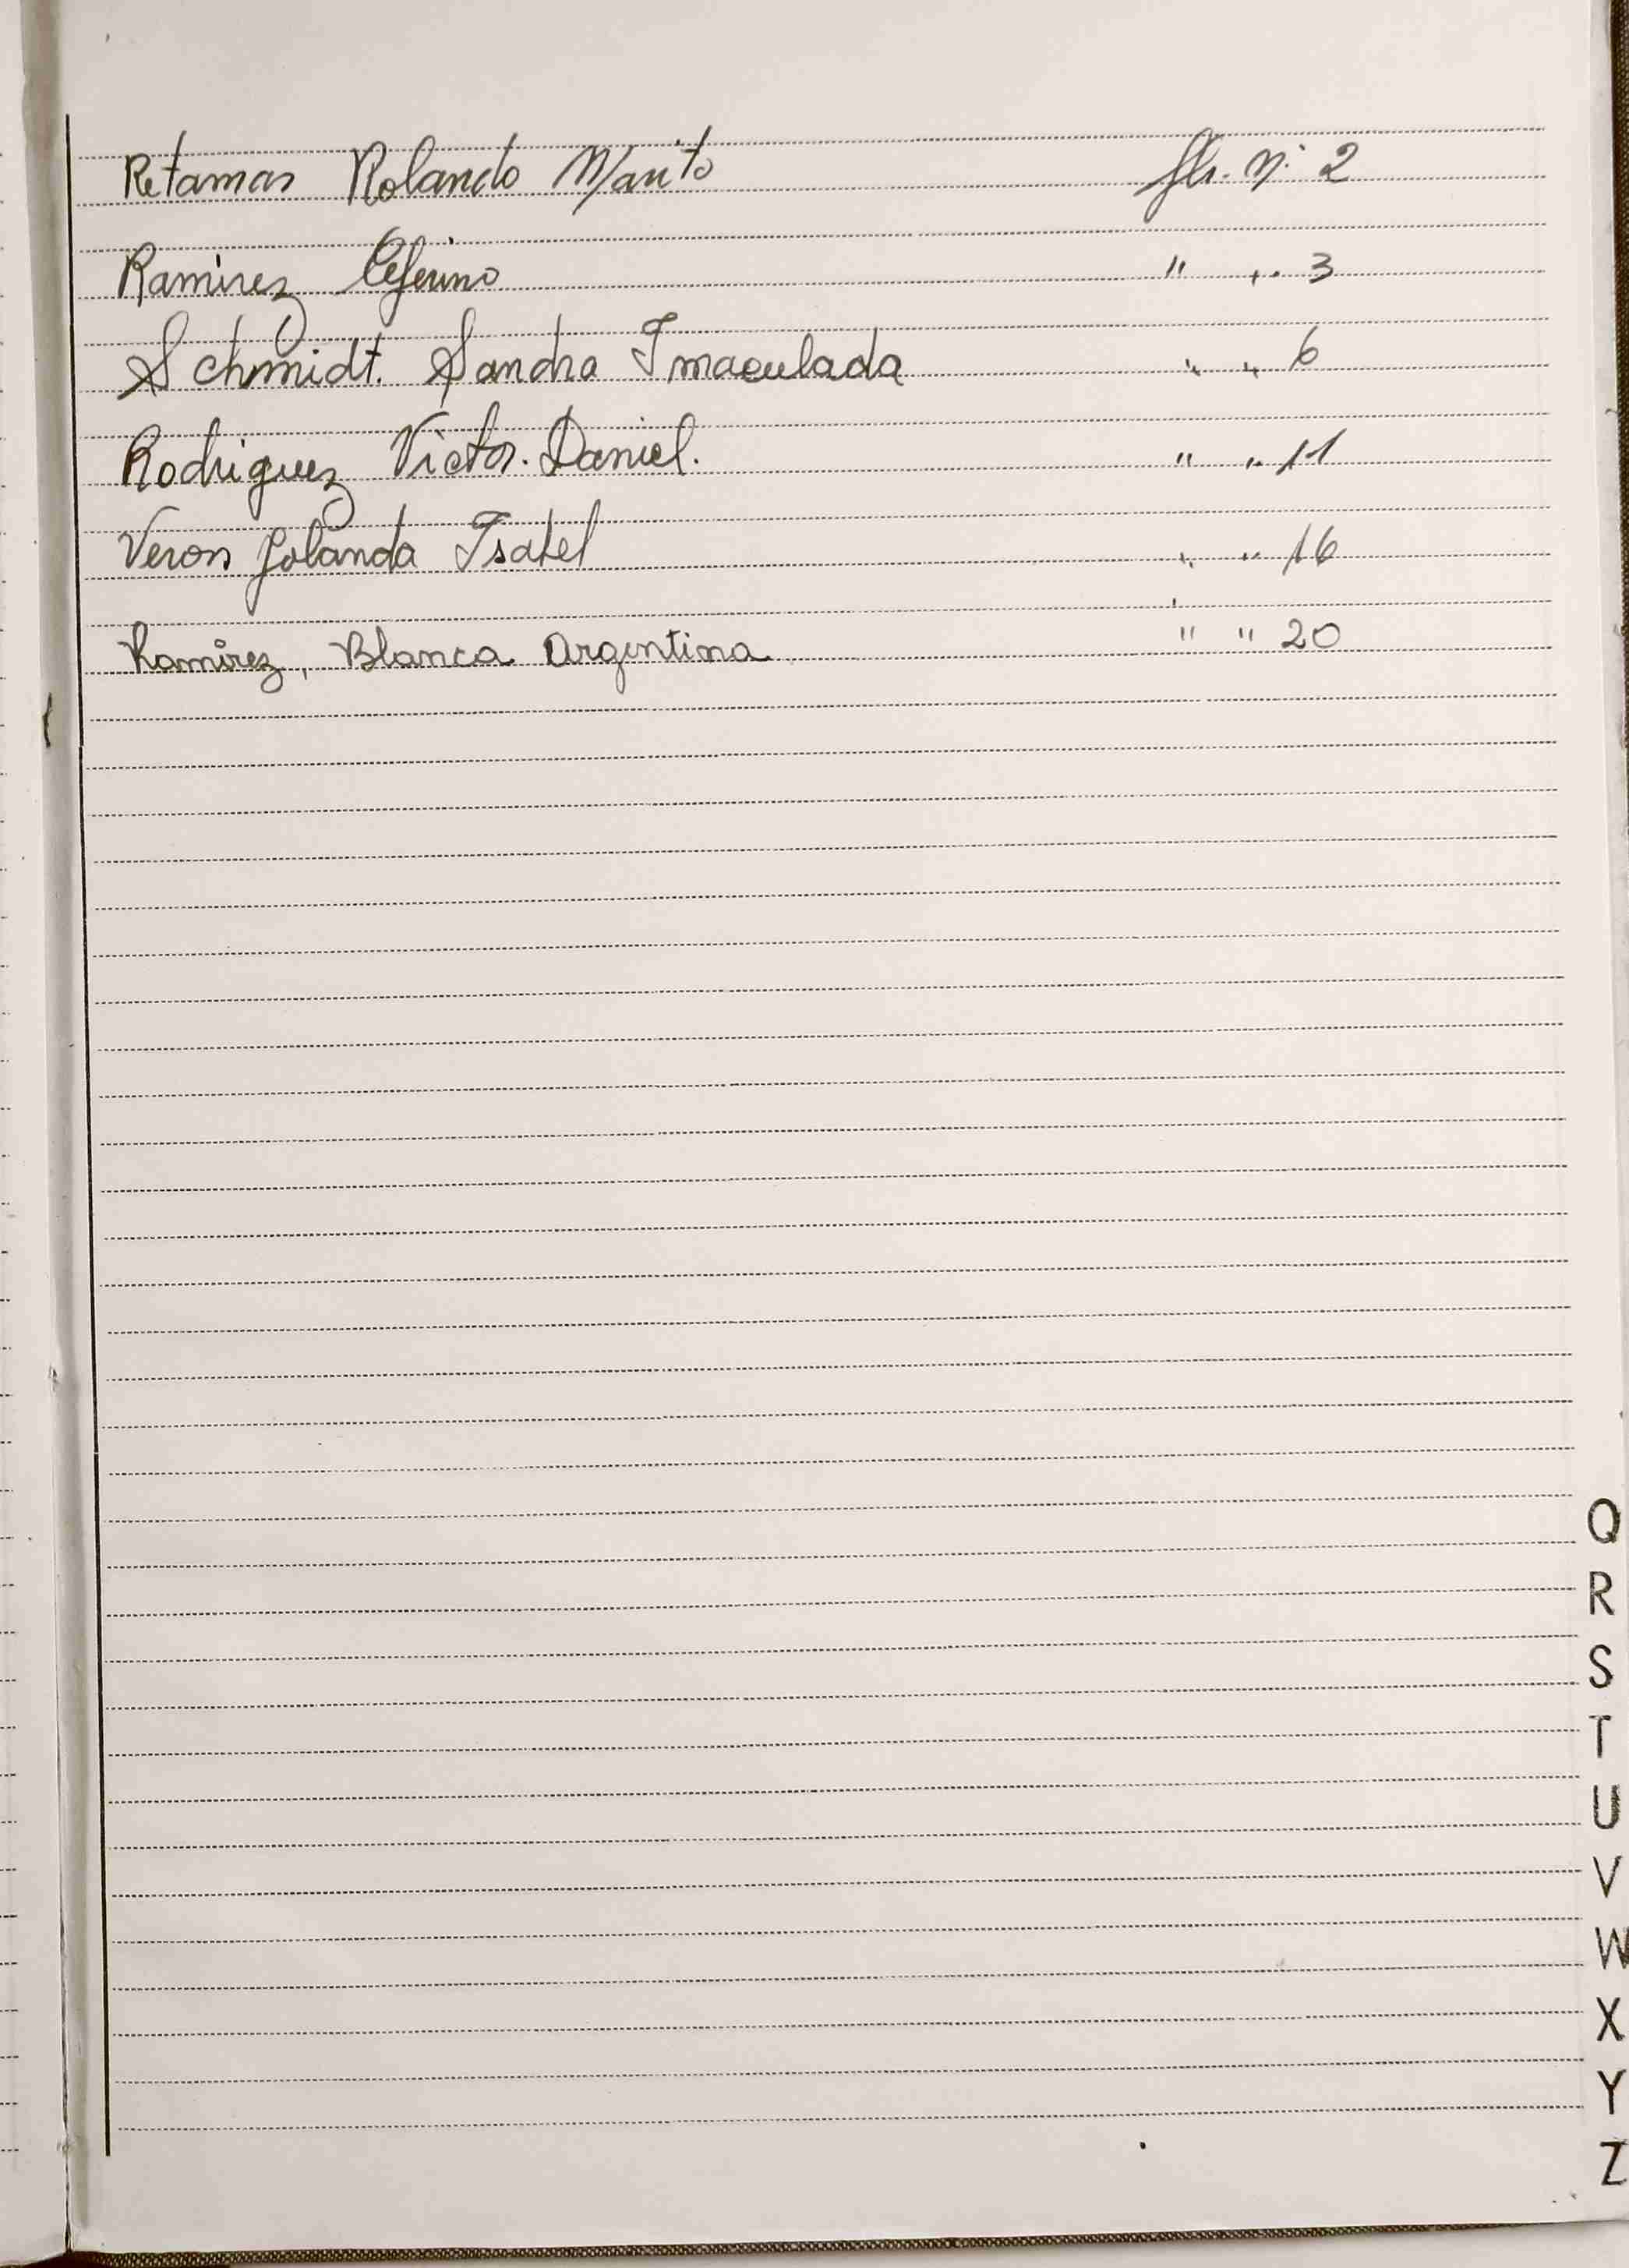 Retamas Rolando Marito fls. Nº 2
Ramirez Ceferino " " 3
Schmidt. Sandra Imaculada " " 6
Rodriguez Victor. Daniel. " " 11
Veron Yolanda Isabel " " 16
Ramírez, Blanca Argentina " " 20
Q
R
S
T
U
V
W
X
Y
Z